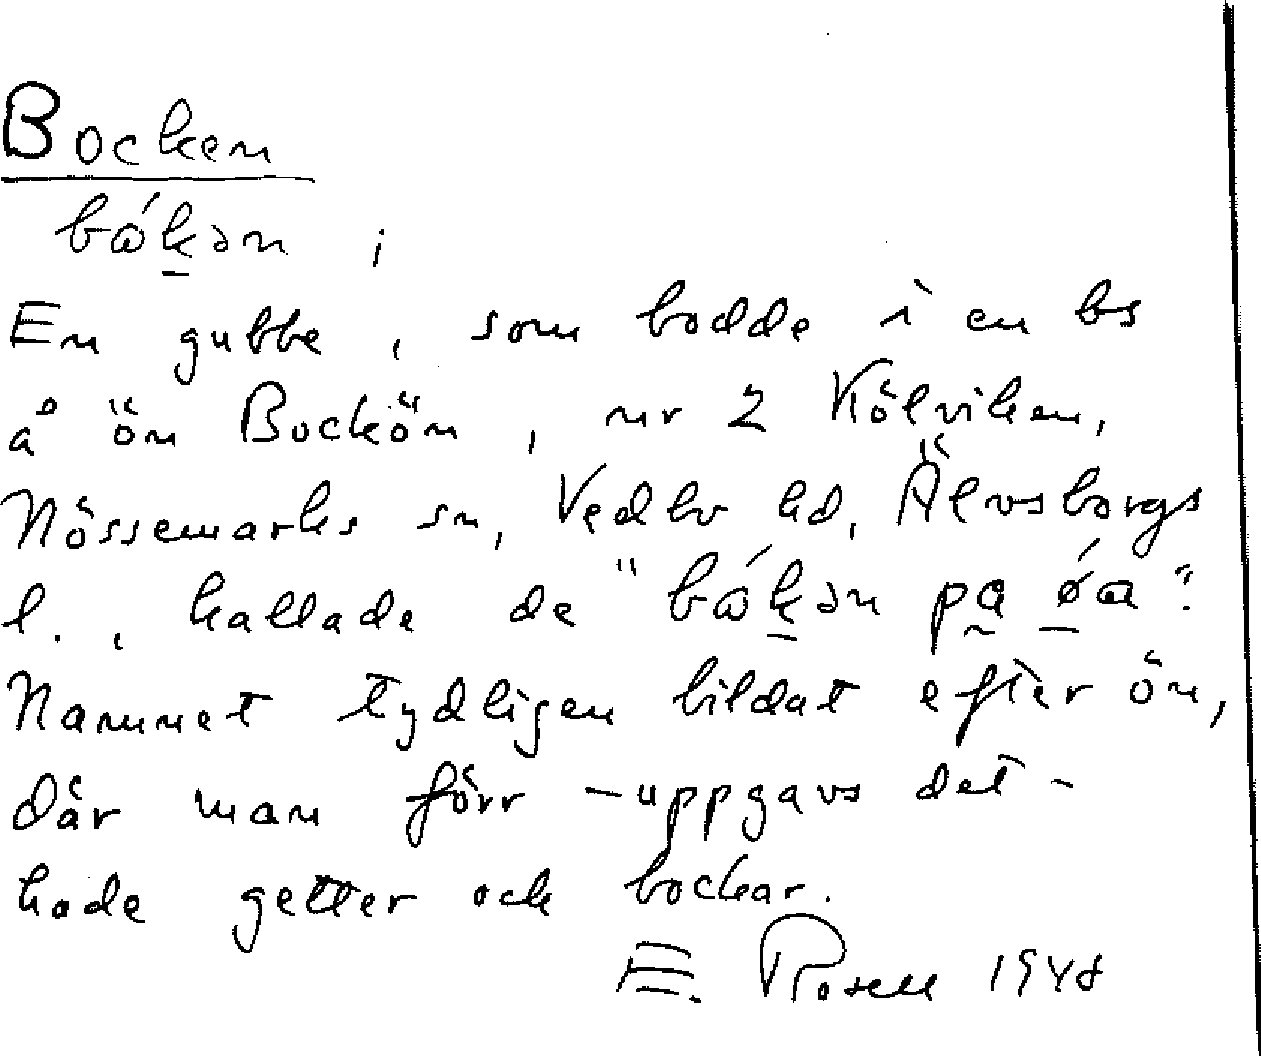 Bocken
bɷ́k̠ən ;
En gubbe, som bodde i en bs
å ön Bockön, nr 2 Kölviken,
Nössemarks sn, Vedbo hd, Älvsborgs
l., kallade de "bɷ́k̠ən pa̰ ǿ̠a".
Namnet tydligen bildat efter ön,
där man förr – uppgavs det –
hade getter och bockar.
E. Rosell 1948